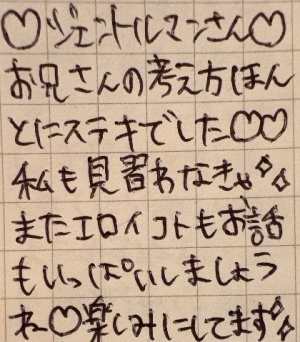 ♡ジェントルマンさん♡
お兄さんの考え方ほん
とにステキでした♡♡
私も見習わなきゃ✧✧
またエロイコトもお話
もいっぱいしましょう
ね♡楽しみにしてます✧✧